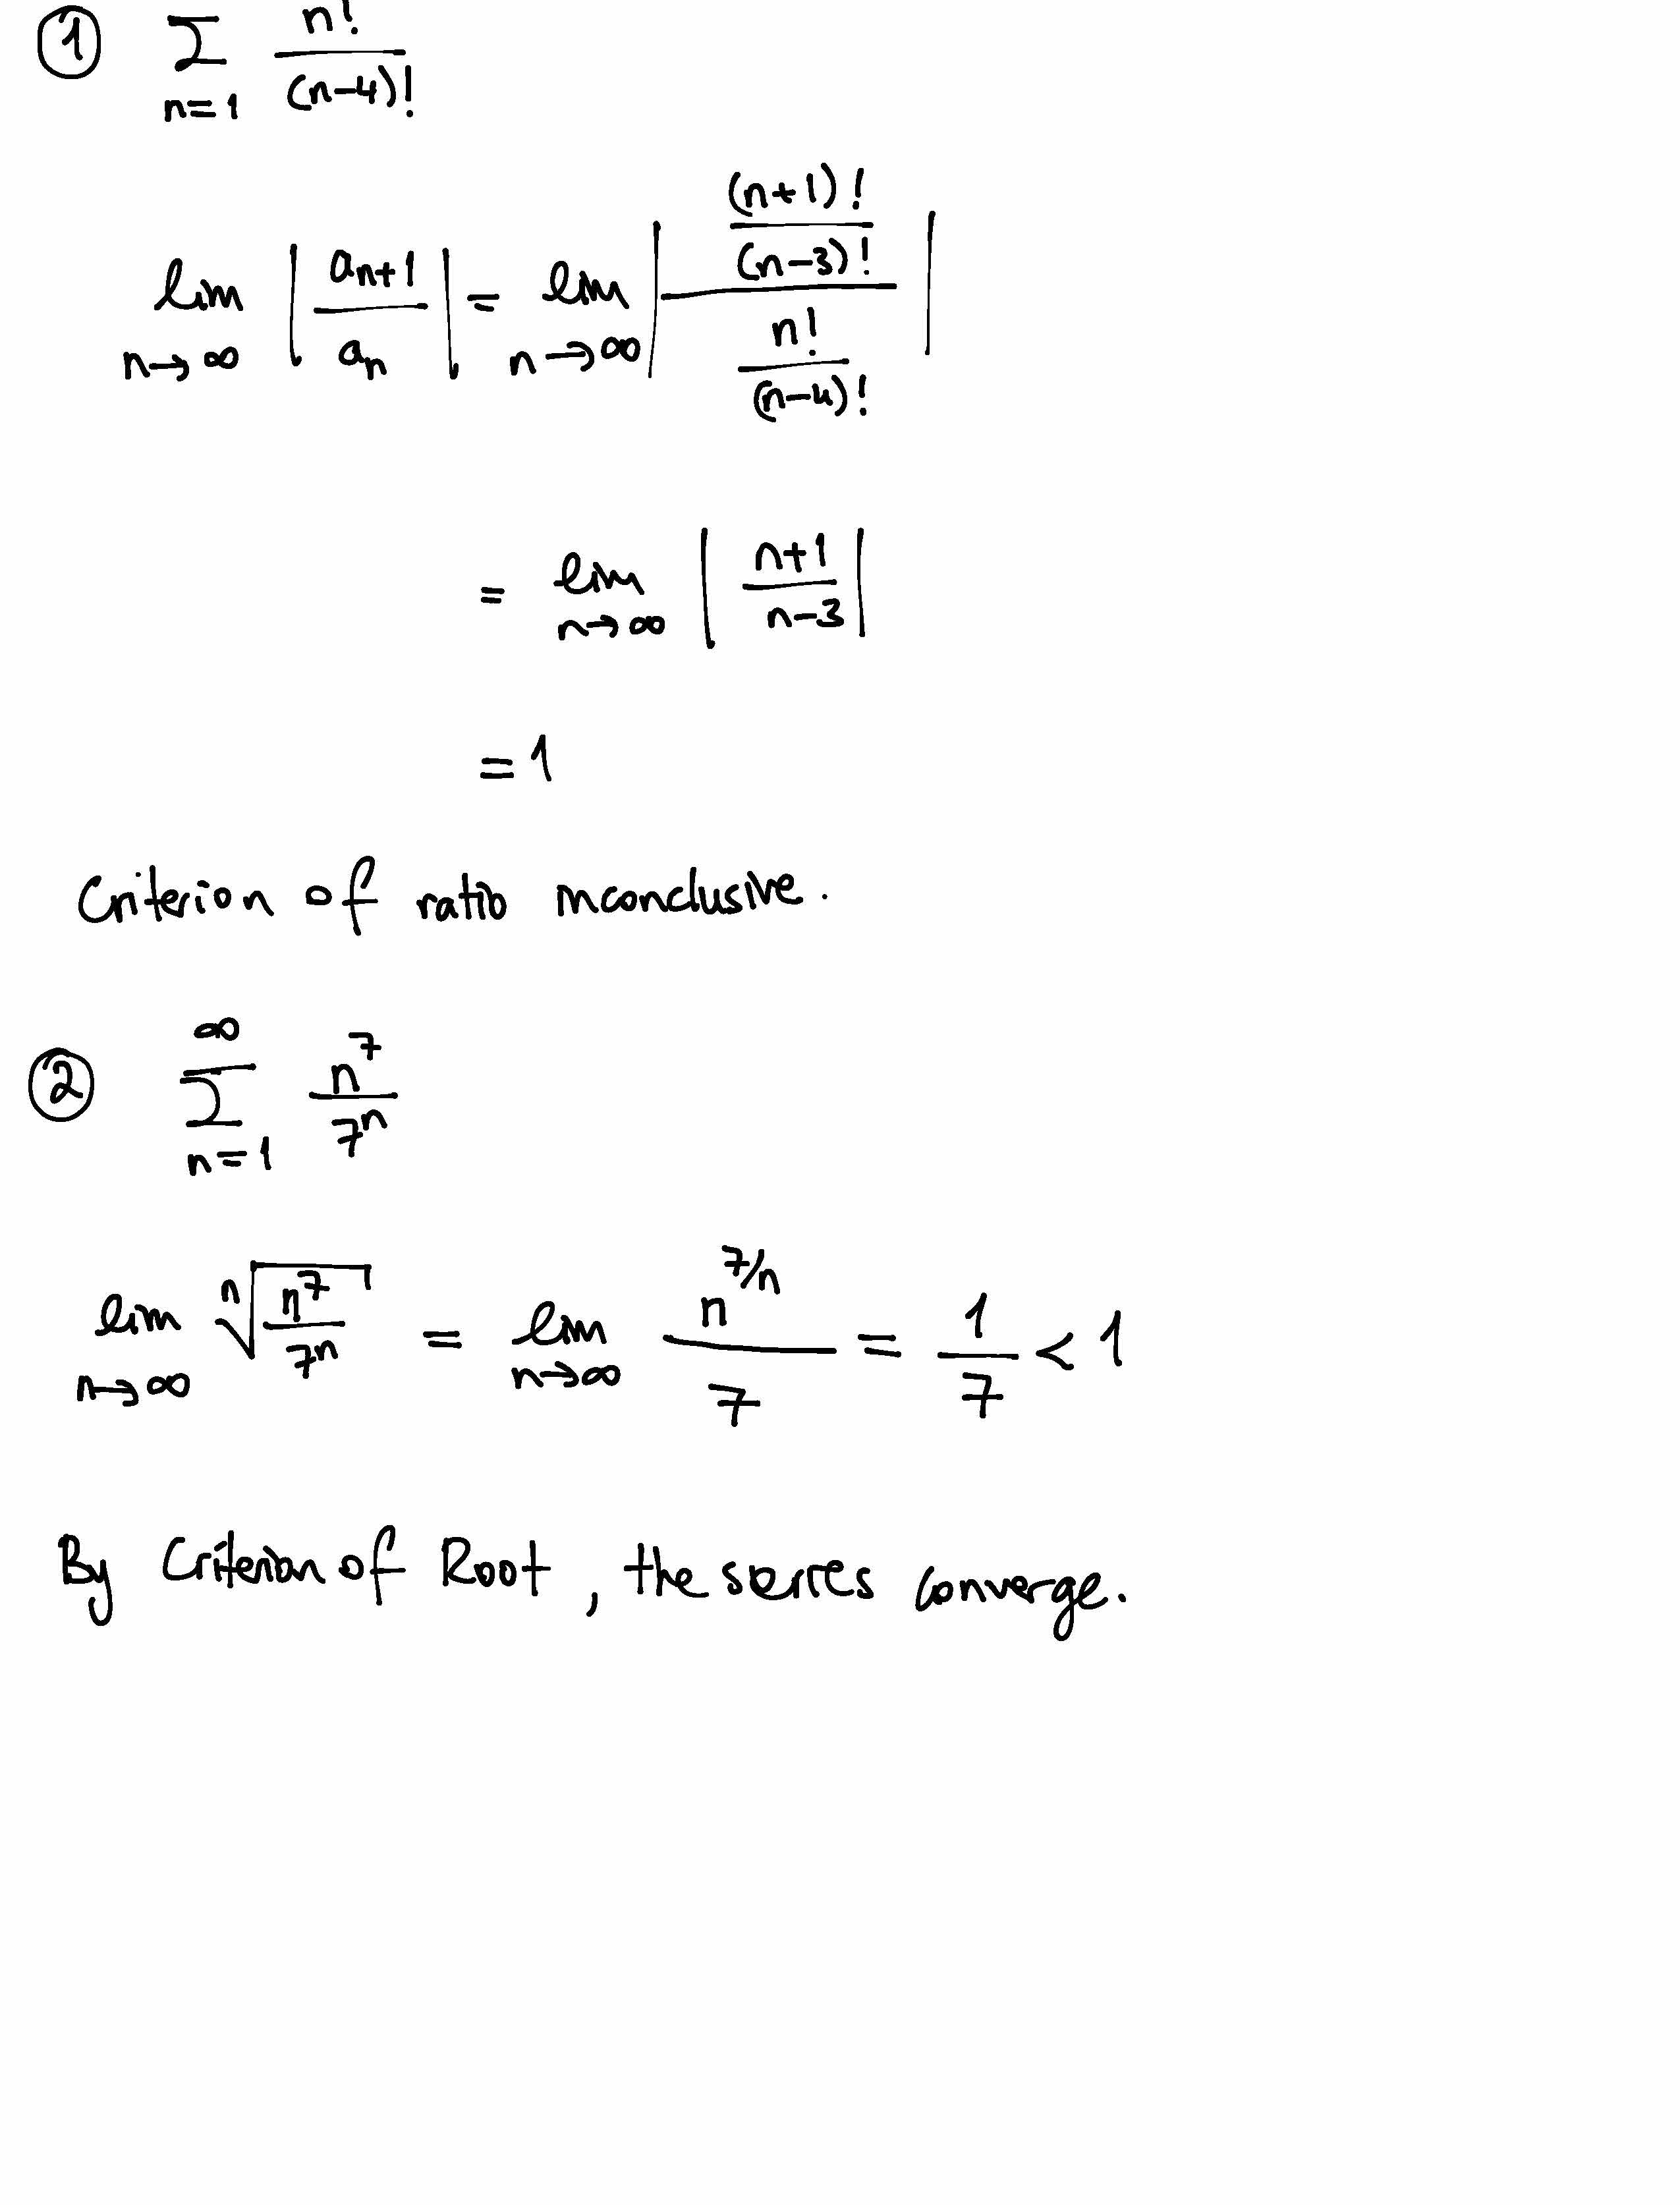 ① Σ_{n=1} n!/(n-4)!
lim_{n→∞} |a_{n+1}/a_n| = lim_{n→∞} |((n+1)!/(n-3)!)/(n!/(n-4)!)|
= lim_{n→∞} |(n+1)/(n-3)|
= 1
Criterion of ratio inconclusive.
② Σ_{n=1}^{∞} n^7/7^n
lim_{n→∞} ⁿ√(n^7/7^n) = lim_{n→∞} n^{7/n}/7 = 1/7 < 1
By Criterion of Root, the series converge.